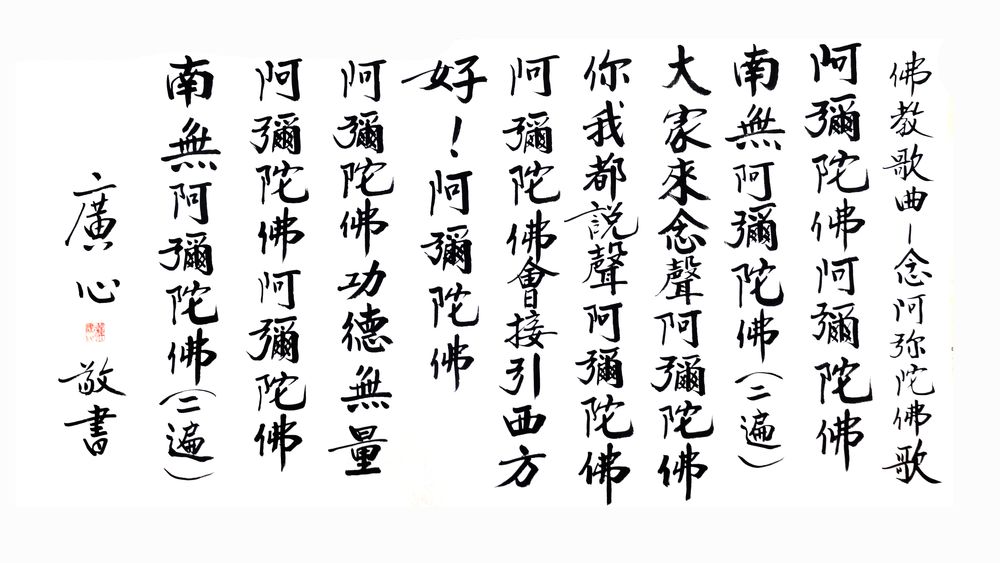 佛教歌曲－念阿弥陀佛歌
阿彌陀佛阿彌陀佛
南無阿彌陀佛（二遍）
大家來念聲阿彌陀佛
你我都說聲阿彌陀佛
阿彌陀佛會接引西方
好！阿彌陀佛
阿彌陀佛功德無量
阿彌陀佛阿彌陀佛
南無阿彌陀佛（二遍）
廣心敬書